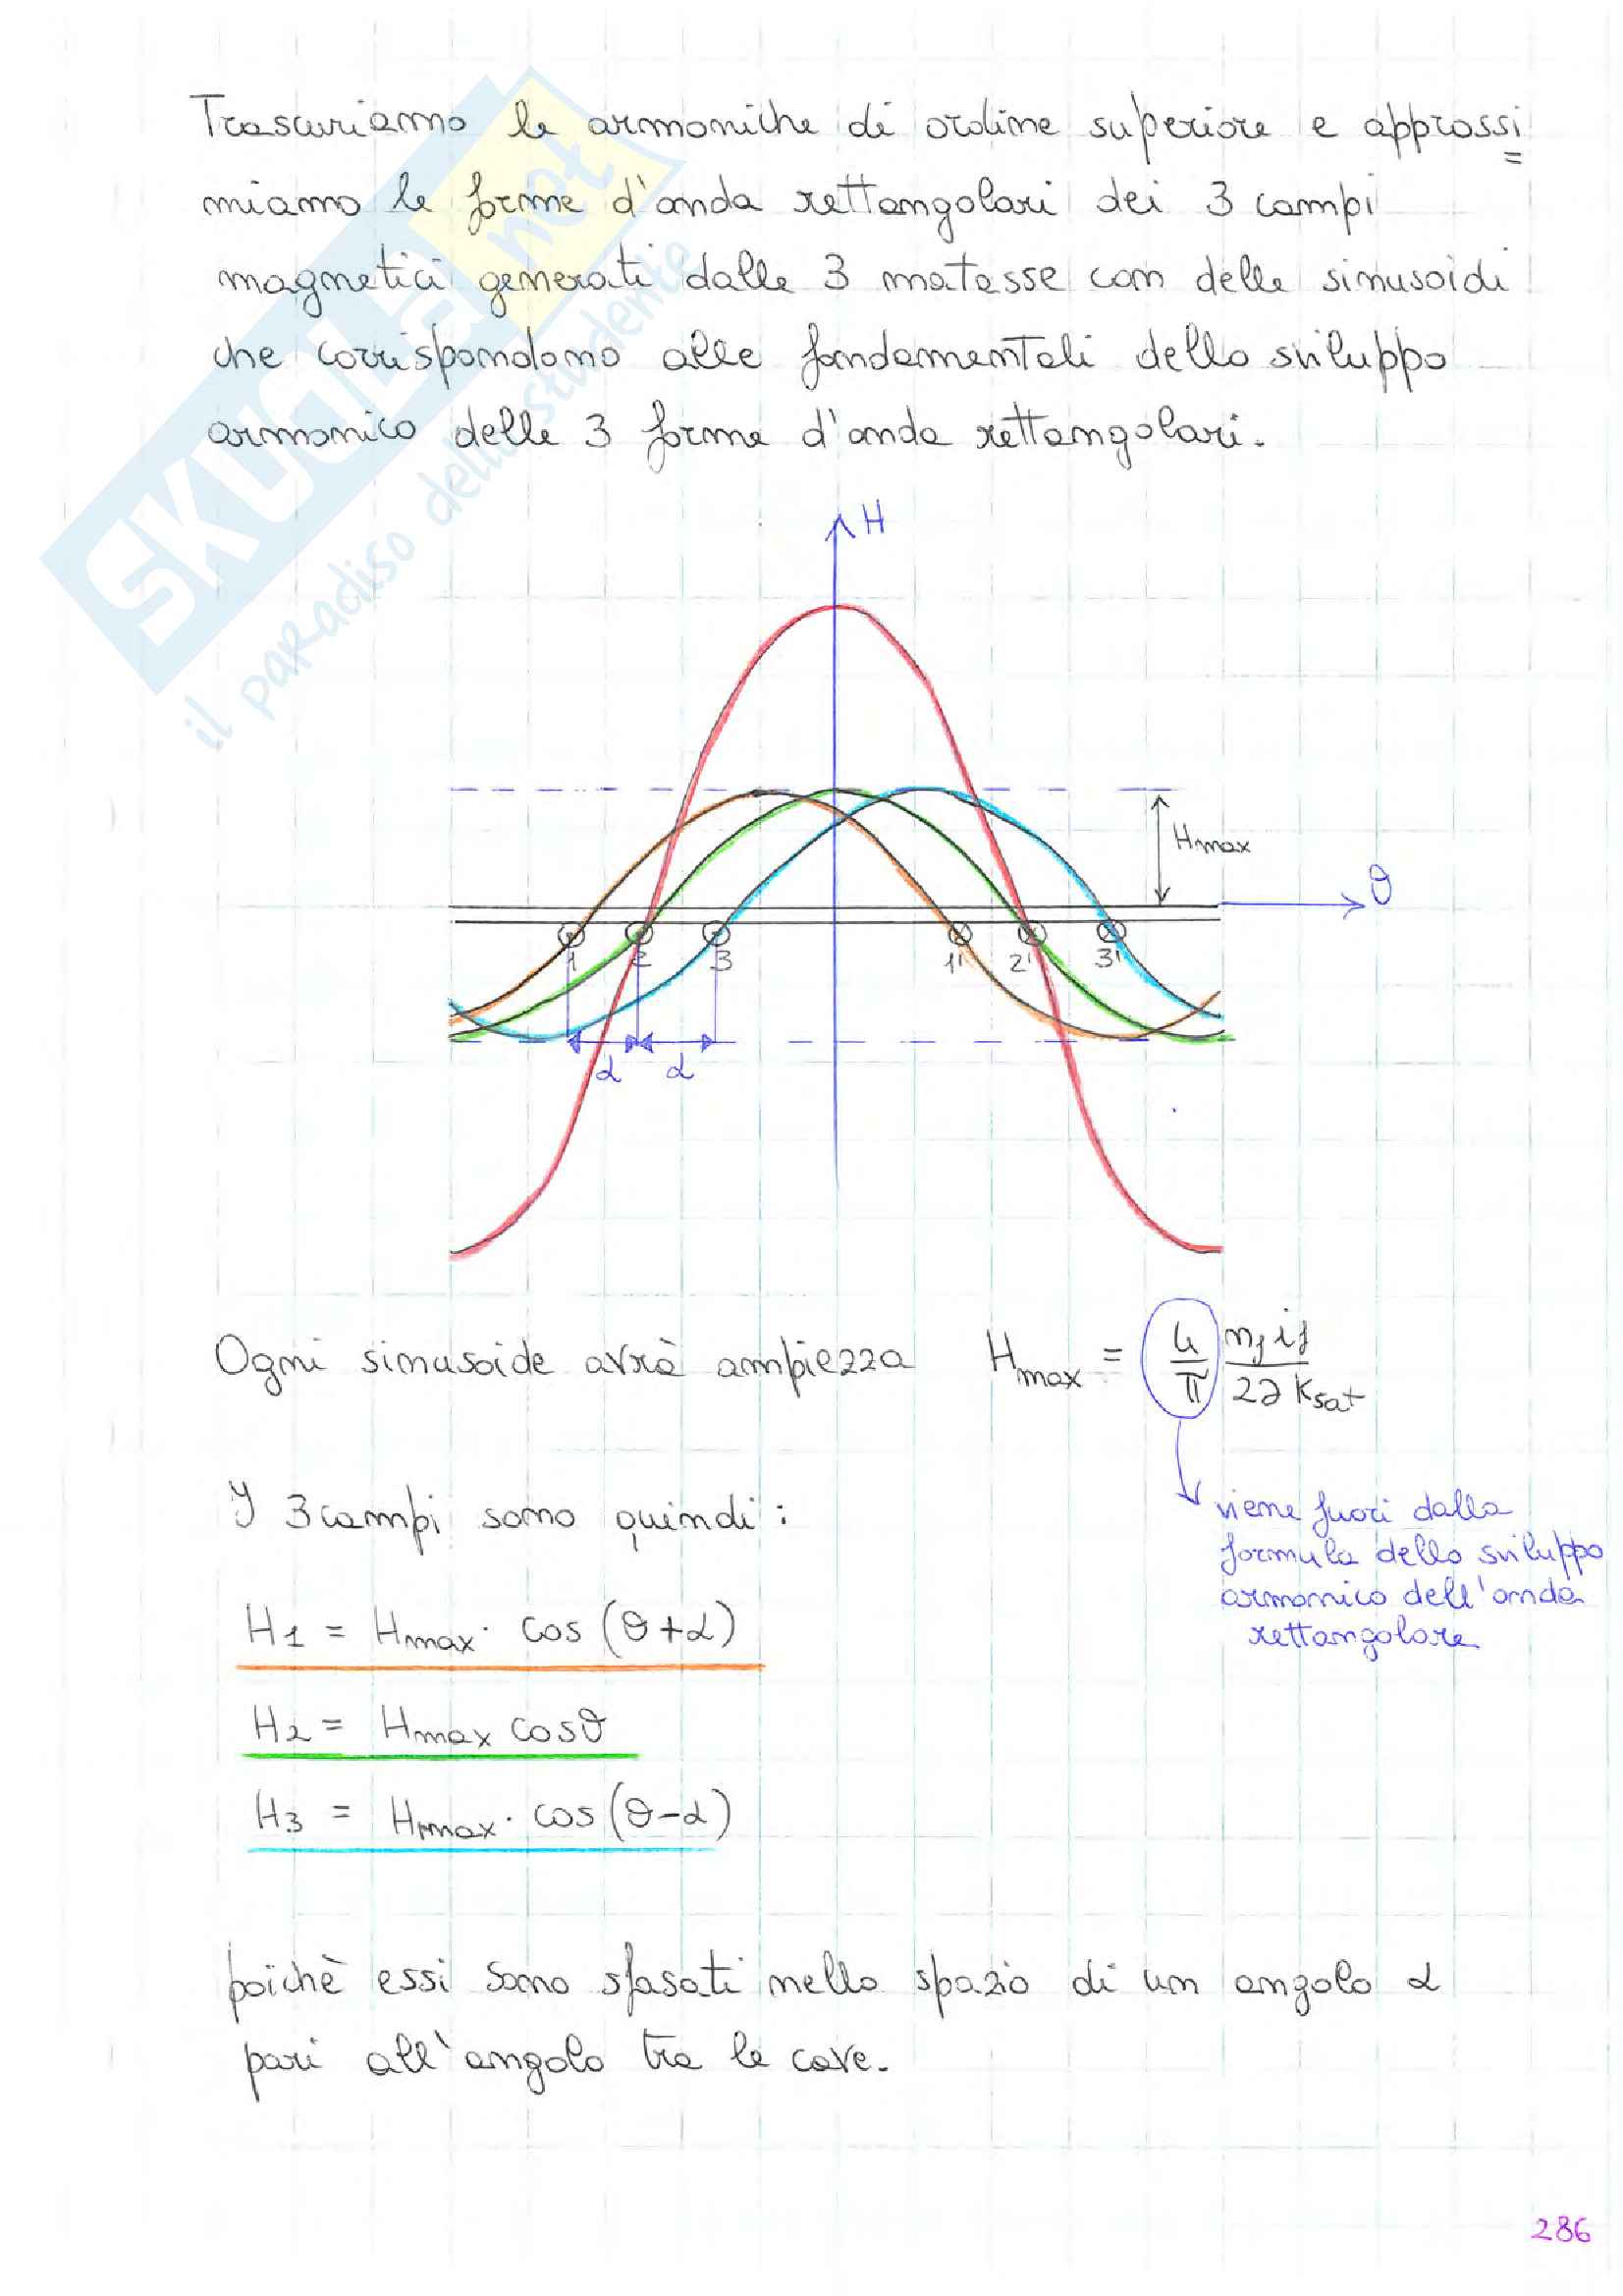 Trascuriamo le armoniche di ordine superiore e approssi
=
miamo le forme d'onda rettangolari dei 3 campi
magnetici generati dalle 3 matasse con delle sinusoidi
che corrispondono alle fondamentali dello sviluppo
armonico delle 3 forme d'onda rettangolari.
SKUOLA.net
il paradiso dello studente
H
Hmax
ϑ
1 2 3 1' 2' 3'
α α
Ogni sinusoide avrà ampiezza Hmax = 4/π nf if / 2∂ Ksat
viene fuori dalla
formula dello sviluppo
armonico dell'onda
rettangolare
I 3 campi sono quindi:
H1 = Hmax · cos (ϑ+α)
H2 = Hmax cosϑ
H3 = Hmax · cos (ϑ-α)
poichè essi sono sfasati nello spazio di un angolo α
pari all'angolo tra le cave.
286